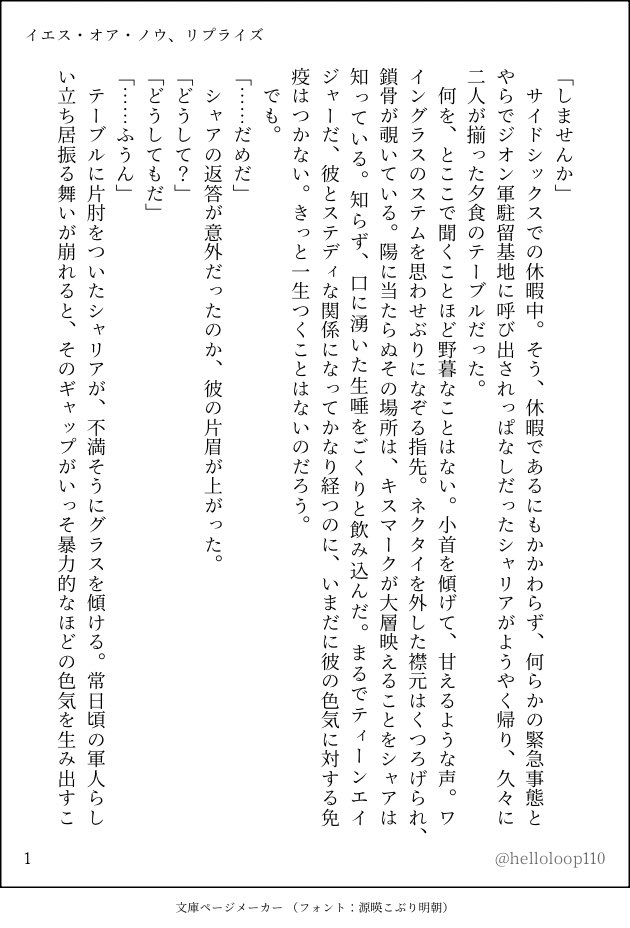 イエス・オア・ノウ、リプライズ
「しませんか」
　サイドシックスでの休暇中。そう、休暇であるにもかかわらず、何らかの緊急事態と
やらでジオン軍駐留基地に呼び出されっぱなしだったシャリアがようやく帰り、久々に
二人が揃った夕食のテーブルだった。
　何を、とここで聞くことほど野暮なことはない。小首を傾げて、甘えるような声。ワ
イングラスのステムを思わせぶりになぞる指先。ネクタイを外した襟元はくつろげられ、
鎖骨が覗いている。陽に当たらぬその場所は、キスマークが大層映えることをシャアは
知っている。知らず、口に湧いた生唾をごくりと飲み込んだ。まるでティーンエイ
ジャーだ、彼とステディな関係になってかなり経つのに、いまだに彼の色気に対する免
疫はつかない。きっと一生つくことはないのだろう。
　でも。
「……だめだ」
　シャアの返答が意外だったのか、彼の片眉が上がった。
「どうして？」
「どうしてもだ」
「……ふうん」
　テーブルに片肘をついたシャリアが、不満そうにグラスを傾ける。常日頃の軍人らし
い立ち居振る舞いが崩れると、そのギャップがいっそ暴力的なほどの色気を生み出すこ
1
@helloloop110
文庫ページメーカー（フォント：源暎こぶり明朝）